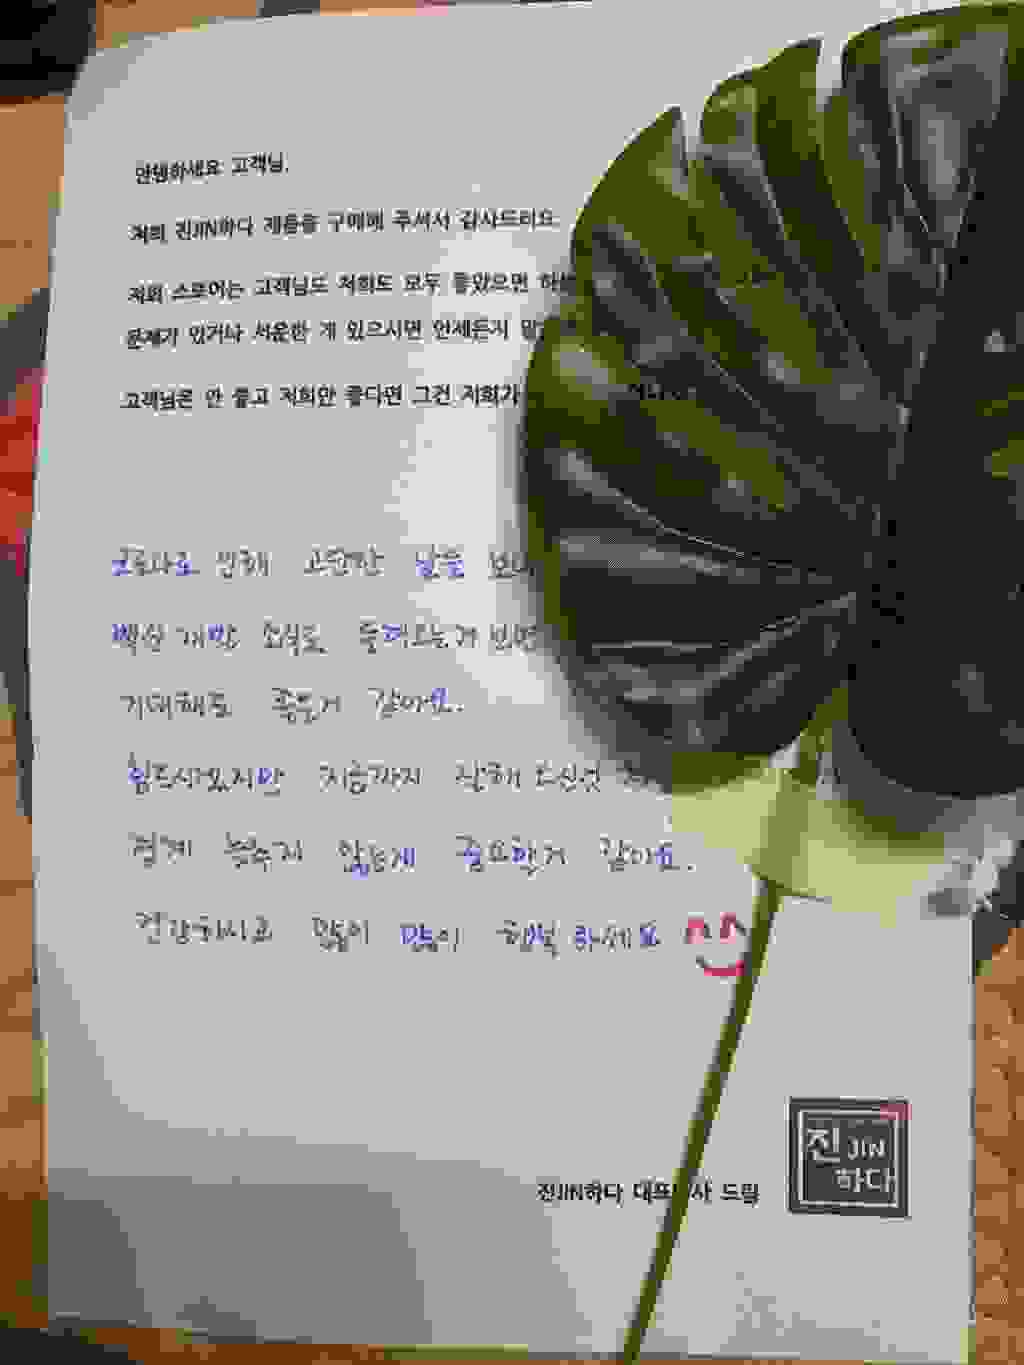 안녕하세요 고객님.
저희 진JIN하다 제품을 구매해 주셔서 감사드려요
저희 스토어는 고객님도 저희도 모두 좋았으면 하는
문제가 있거나 서운한 게 있으시면 언제든지 말씀
고객님은 안 좋고 저희만 좋다면 그건 저희가
코로나로 인해 고단한 날을
백신 개발 소식도 들려오는거 보면
기대해도 좋은거 같아요.
힘드시겠지만 지금까지 잘해 오신것
경계 늦추지 않는게 중요한거 같아요.
건강하시고 많이 많이 행복 하세요
진JIN하다 대표 드림
진JIN
하다